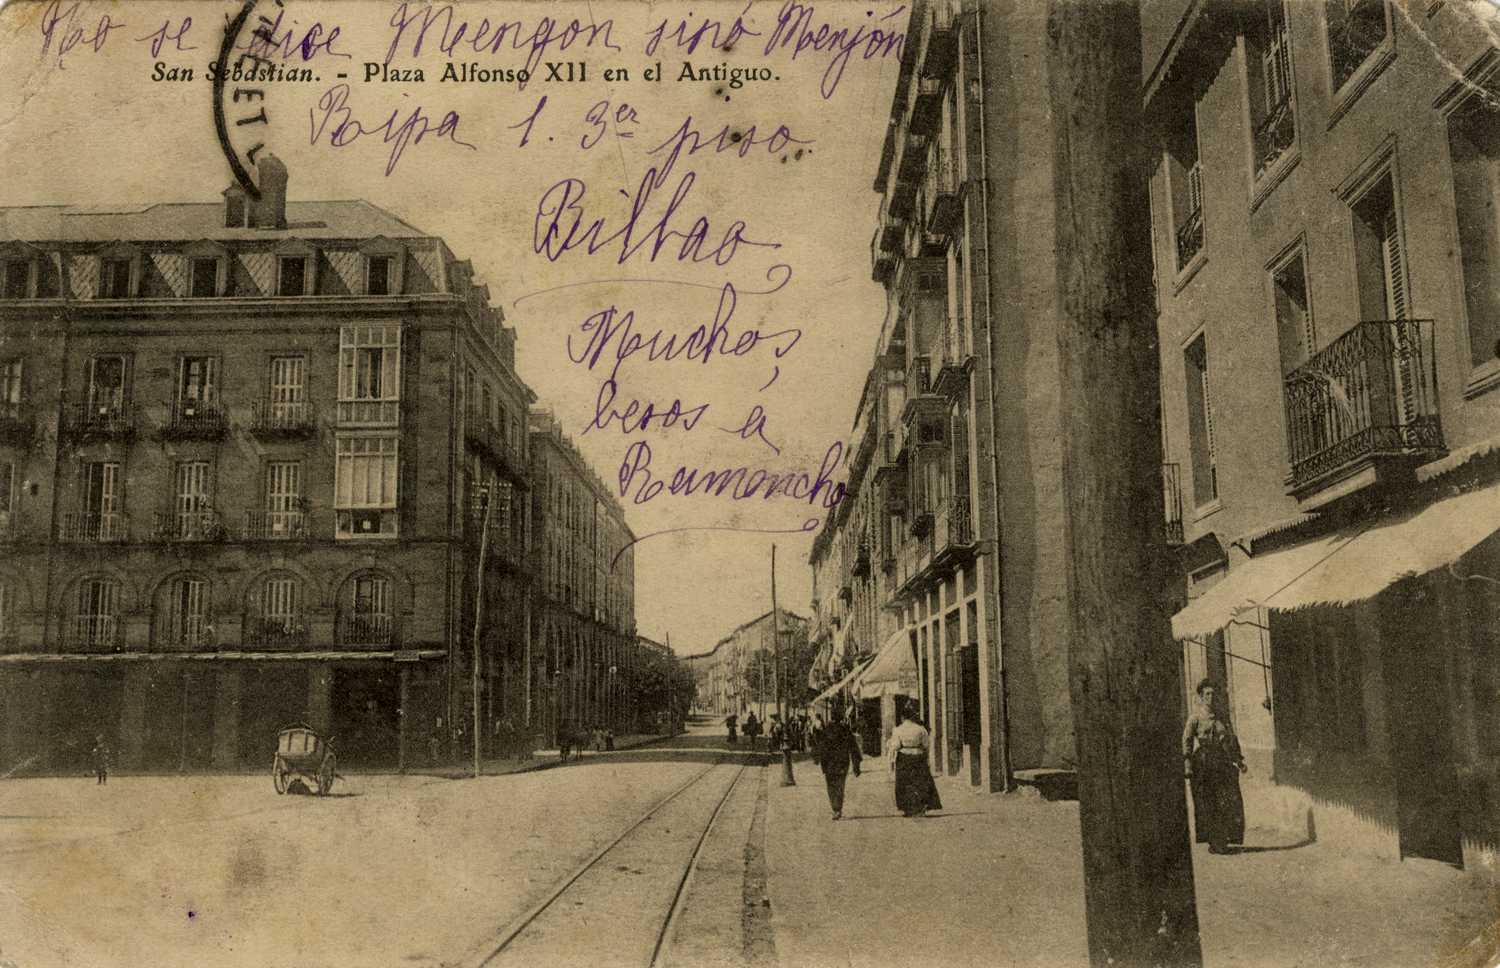 No se dice Meengon sinó Menjón
San Sebastian. - Plaza Alfonso XII en el Antiguo.
Ripa 1. 3er piso.
Bilbao
Muchos
besos á
Ramoncho
ET